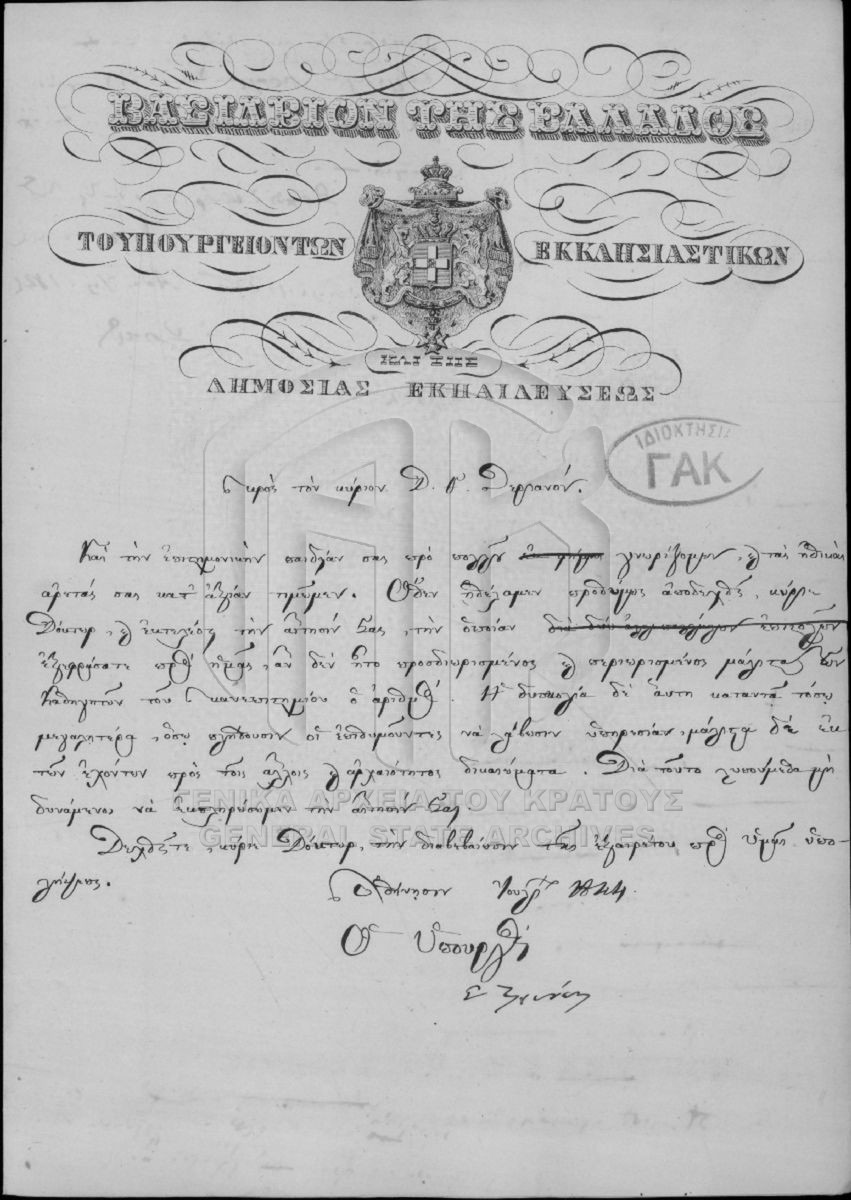 ΒΑΣΙΛΕΙΟΝ ΤΗΣ ΕΛΛΑΔΟΣ
ΤΟ ΥΠΟΥΡΓΕΙΟΝ ΤΩΝ ΕΚΚΛΗΣΙΑΣΤΙΚΩΝ
ΚΑΙ ΤΗΣ
ΔΗΜΟΣΙΑΣ ΕΚΠΑΙΔΕΥΣΕΩΣ
ΙΔΙΟΚΤΗΣΙΑ
ΓΑΚ
πρὸς τὸν κύριον Δ. Γ.
Καὶ τὴν ἐπιστημονικὴν παιδείαν σας πρὸ πολλοῦ γνωρίζομεν, καὶ τὰς ἠθικὰς
ἀρετάς σας κατ' ἀξίαν τιμῶμεν. Ὅθεν ἠθέλαμεν προθύμως ἀποδεχθῆ, κύριε
Δόκτωρ, καὶ ἐκτελέσει τὴν αἴτησίν Σας, τὴν ὁποίαν
ἐξεφράσατε πρὸς ἡμᾶς, ἂν δὲν ἦτο προσδιωρισμένος καὶ περιωρισμένος μάλιστα τῶν
Καθηγητῶν τοῦ Πανεπιστημίου ὁ ἀριθμός. Ἡ δυσκολία δὲ αὕτη καταντᾷ τόσῳ
μεγαλητέρα, ὅσῳ πληθύουσιν οἱ ἐπιθυμοῦντες νὰ λάβωσιν ὑπηρεσίαν, μάλιστα δὲ ἐκ
τῶν ἐχόντων πρὸς τοῖς ἄλλοις καὶ ἀρχαιότητος δικαιώματα. Διὰ τοῦτο λυπούμεθα μὴ
δυνάμενοι νὰ ἐκπληρώσωμεν τὴν αἴτησίν Σας.
Δεχθῆτε, κύριε Δόκτωρ, τὴν διαβεβαίωσιν τῆς ἐξαιρέτου πρὸς ὑμᾶς ὑπο-
λήψεως.
Ἀθήνησιν 1844
Ὁ Ὑπουργὸς
ΓΕΝΙΚΑ ΑΡΧΕΙΑ ΤΟΥ ΚΡΑΤΟΥΣ
GENERAL STATE ARCHIVES